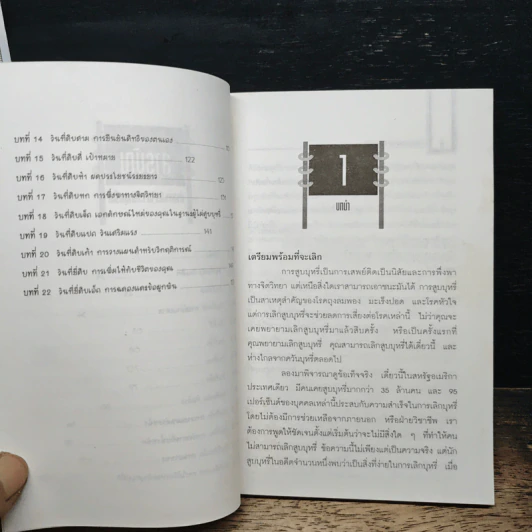 บทที่ 14 วันที่สิบสาม การยืนยันสิทธิของตนเอง
บทที่ 15 วันที่สิบสี่ เป้าหมาย 122
บทที่ 16 วันที่สิบห้า ผลประโยชน์ระยะยาว
บทที่ 17 วันที่สิบหก การพึ่งพาทางจิตวิทยา
บทที่ 18 วันที่สิบเจ็ด เอกลักษณ์ใหม่ของคุณในฐานะผู้ไม่สูบบุหรี่
บทที่ 19 วันที่สิบแปด วันเสริมแรง 141
บทที่ 20 วันที่สิบเก้า การวางแผนสำหรับวิกฤติการณ์
บทที่ 21 วันที่ยี่สิบ การเพิ่มให้กับชีวิตของคุณ
บทที่ 22 วันที่ยี่สิบเอ็ด การฉลองและข้อผูกพัน
1
บทนำ
เตรียมพร้อมที่จะเลิก
การสูบบุหรี่เป็นการเสพย์ติดเป็นนิสัยและการพึ่งพา
ทางจิตวิทยา แต่เหนือสิ่งใดเราสามารถเอาชนะมันได้ การสูบบุหรี่
เป็นสาเหตุสำคัญของโรคถุงลมพอง มะเร็งปอด และโรคหัวใจ
แต่การเลิกสูบบุหรี่จะช่วยลดการเสี่ยงต่อโรคเหล่านี้ ไม่ว่าคุณจะ
เคยพยายามเลิกสูบบุหรี่มาแล้วสิบครั้ง หรือเป็นครั้งแรกที่
คุณพยายามเลิกสูบบุหรี่ คุณสามารถเลิกสูบบุหรี่ได้เดี๋ยวนี้ และ
ห่างไกลจากควันบุหรี่ตลอดไป
ลองมาพิจารณาดูข้อเท็จจริง เดี๋ยวนี้ในสหรัฐอเมริกา
ประเทศเดียว มีคนเคยสูบบุหรี่มากกว่า 35 ล้านคน และ 95
เปอร์เซ็นต์ของบุคคลเหล่านี้ประสบกับความสำเร็จในการเลิกบุหรี่
โดยไม่ต้องมีการช่วยเหลือจากภายนอก หรือฝ่ายวิชาชีพ เรา
ต้องการพูดให้ชัดเจนตั้งแต่เริ่มต้นว่าจะไม่มีสิ่งใด ๆ ที่ทำให้คน
ไม่สามารถเลิกสูบบุหรี่ ข้อความนี้ไม่เพียงแต่เป็นความจริง แต่นัก
สูบบุหรี่ในอดีตจำนวนหนึ่งพบว่าเป็นสิ่งที่ง่ายในการเลิกบุหรี่ เมื่อ